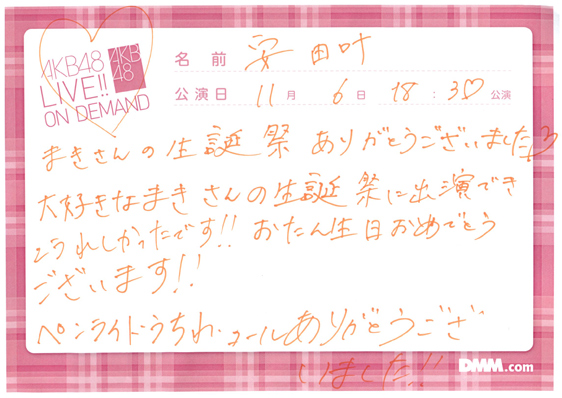 AKB48
LIVE!!
ON DEMAND
AKB
48
名前 安田叶
公演日 11月 6日 18:30♡ 公演
まきさんの生誕祭 ありがとうございました!♡
大好きなまきさんの生誕祭に出演でき
うれしかったです!! おたん生日おめでとう
ございます!!
ペンライト・うちわ・コールありがとうござ
いました!!
DMM.com